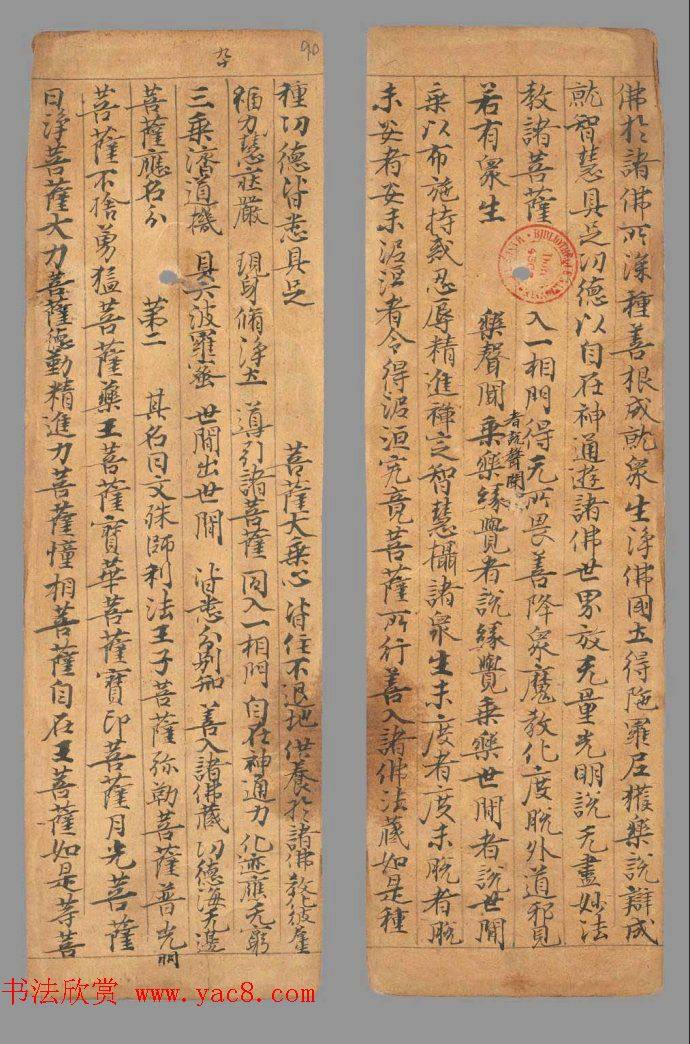 佛於諸佛所深種善根成就衆生淨佛國土得陁羅尼獲樂說辯成
就智慧具足功德以自在神通遊諸佛世界放无量光明說无盡妙法
教諸菩薩 入一相門得无所畏善降衆魔教化度脫外道邪見
若有衆生 樂聲聞乘樂緣覺者說緣覺乘樂世間者說世間
者說聲聞
乘以布施持戒忍辱精進禪定智慧攝諸衆生未度者度未脫者脫
未安者安未涅洹者令得涅洹究竟菩薩所行善入諸佛法藏如是種
90
種功德皆悉具足 菩薩大乘心 皆住不退地 供養於諸佛 教化彼
福力慧莊嚴 現身脩淨土 導行諸菩薩 同入一相門 自在神通力 化迹應无窮
三乘濟道機 具六波羅蜜 世間出世間 皆悉分別知 善入諸佛藏 功德海无邊
菩薩應名分 第二 其名曰文殊師利法王子菩薩弥勒菩薩普光明
菩薩不捨勇猛菩薩藥王菩薩寶華菩薩寶印菩薩月光菩薩
日淨菩薩大力菩薩德勤精進力菩薩幢相菩薩自在王菩薩如是等菩
BIBLIOTHÈQUE
书法欣赏 www.yac8.com